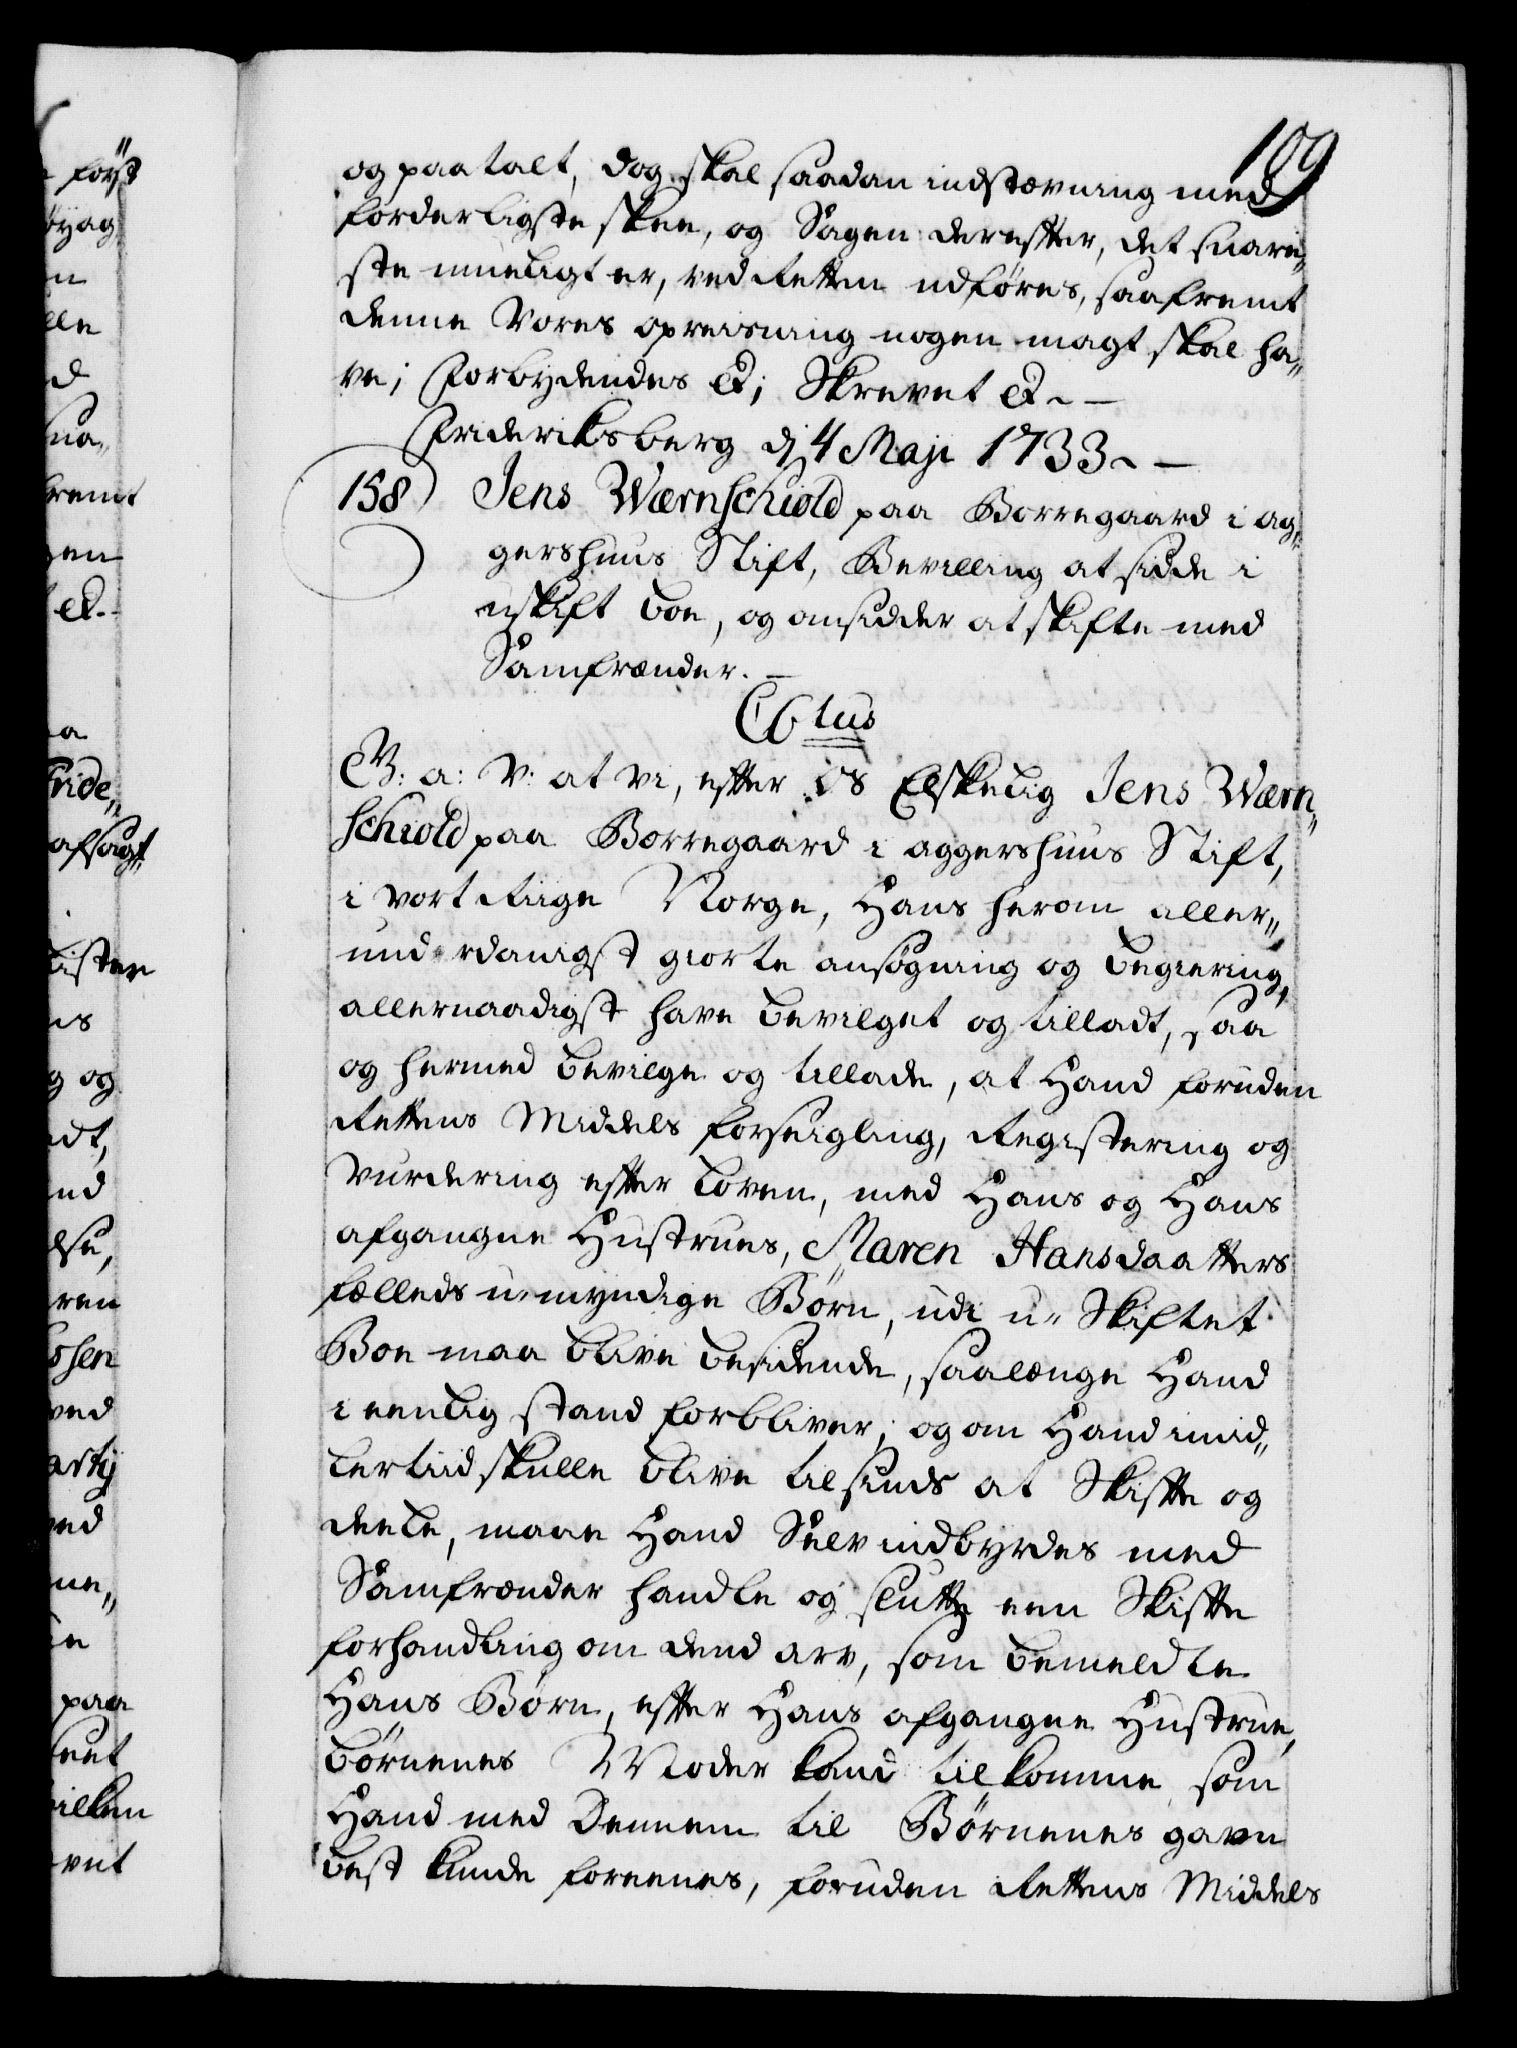 109
og paatalt, dog skal saadan indstævning med
forderligste skee, og Sagen derefter, det snare„
ste mueligt er, ved Retten udføres, saafremt
denne Vores opreisning nogen magt skal ha„
ve; Forbydendes &; Skrevet &. —
Frideriksberg dj 4 Maji 1733. —
158) Jens Wærnschiold paa Borregaard i Ag„
gershuus Stift, Bevilling at sidde i
uskift boe, og omsidder at skifte med
Samfrænder. —
C6tus
G: a: V: at vi, efter Os Elskelig Jens Wærn„
schiold paa Borregaard i Aggershuus Stift,
i vort Riige Norge, Hans herom aller„
underdanigst giorte ansøgning og begiering,
allernaadigst have bevilget og tilladt, saa
og hermed bevilge og tillade, at Hand foruden
Rettens Middels forseigling, Registering og
Vurdering efter Loven, med Hans og Hans
afgangne Hustrues, Maren Hansdaatters
fælleds u-myndige Børn, udi u-Skiftet
Boe maa blive besidende, saalænge Hand
i eenlig stand forbliver; og om Hand imid„
lertiid skulle blive til sinds at Skifte og
deele, maae Hand Selv indbyrdes med
Samfrænder handle og slutte een Skifte
forhandling om dend arv, som bemeldte
Hans Børn, efter Hans afgangne Hustrue,
børnenes Moder kand tilkomme, som
Hand med Dennem til Børnenes gavn
best kunde foreenes, foruden Rettens Middels